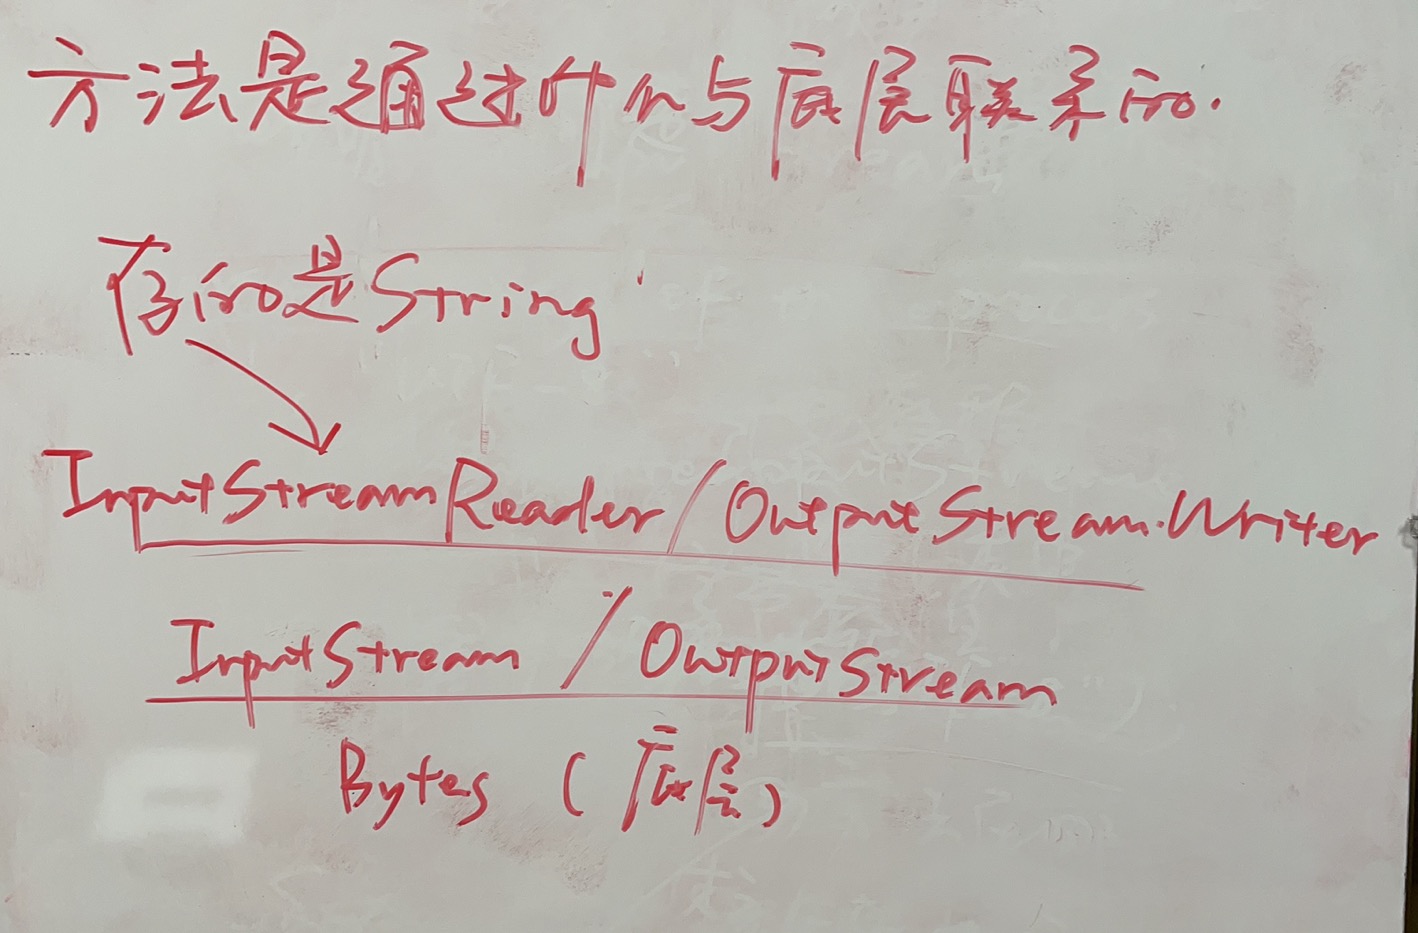 方法是通过什么与底层联系的.
存的是String
InputStreamReader/OutputStreamWriter
InputStream / OutputStream
Bytes (底层)